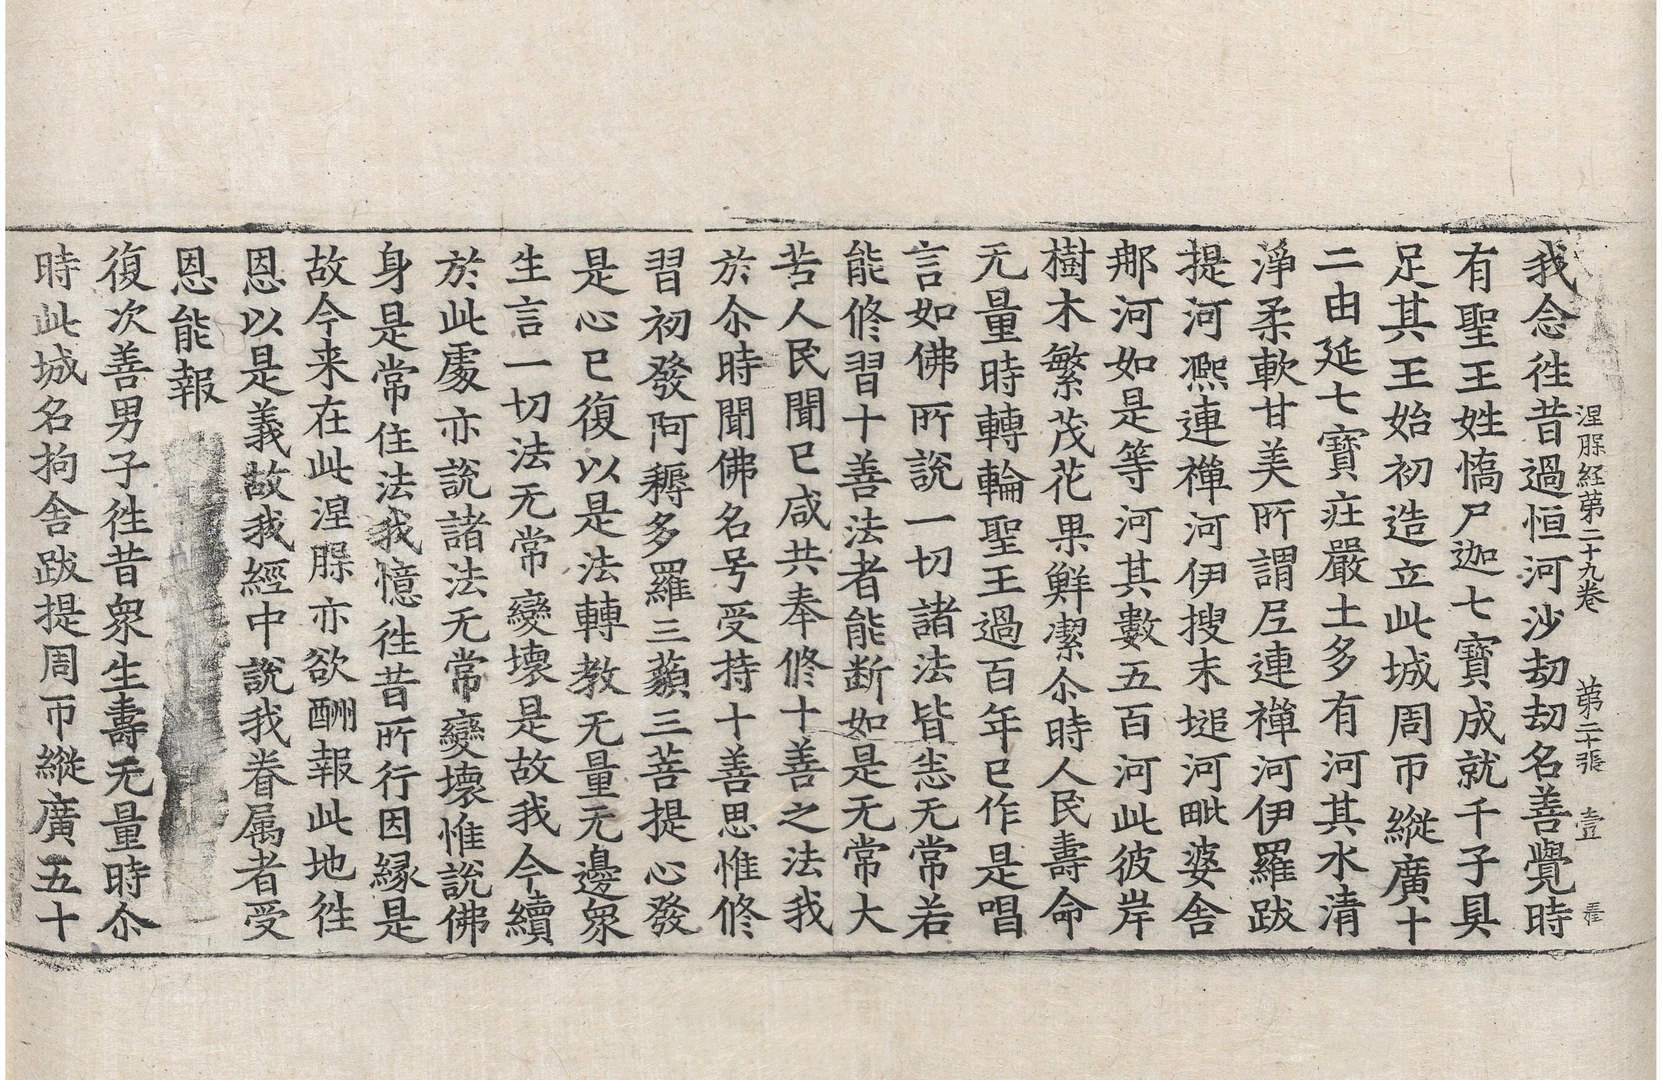 涅脲経苐二十九卷 苐二十張 壹
我念徃昔過恒河沙劫劫名善覺時
有聖王姓憍尸迦七寶成就千子具
足其王始初造立此城周帀縱廣十
二由延七寶莊嚴土多有河其水清
淨柔軟甘美所謂尼連禪河伊羅跋
提河凞連禪河伊搜末塠河毗婆舍
那河如是等河其數五百河此彼岸
樹木繁茂花果鮮潔尒時人民壽命
无量時轉輪聖王過百年已作是唱
言如佛所說一切諸法皆悉无常若
能修習十善法者能断如是无常大
苦人民聞已咸共奉修十善之法我
於尒時聞佛名号受持十善思惟修
習初發阿耨多羅三藐三菩提心發
是心已復以是法轉教无量无邊衆
生言一切法无常變壞是故我今續
於此處亦說諸法无常變壞惟說佛
身是常住法我憶徃昔所行因縁是
故今来在此涅脲亦欲酬報此地徃
恩以是義故我經中說我眷属者受
恩能報
復次善男子徃昔衆生壽无量時尒
時此城名拘舍跋提周帀縱廣五十